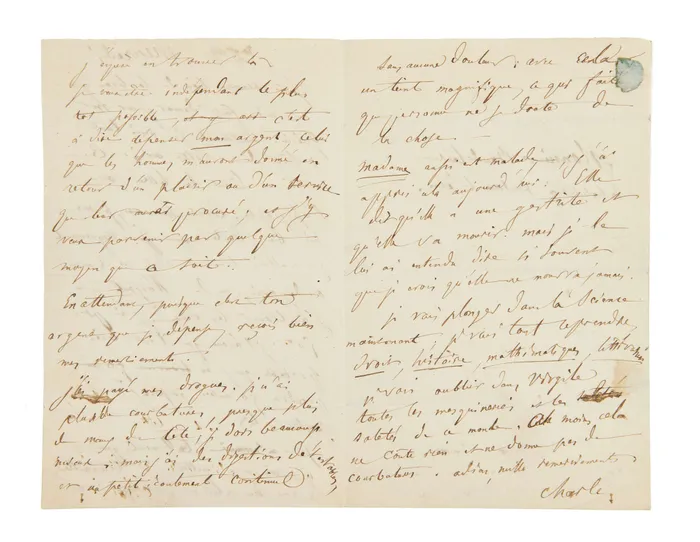 j'espère en trouver
je voudrais être indépendant le plus
tôt possible, c'est
à dire dépenser mon argent, celui
que les hommes m'auront donné en
retour d'un plaisir ou d'un service
que leur aurais procuré; et j'y
veux parvenir par quelque
moyen que ce soit.
En attendant, puisque c'est ton
argent que je dépense, reçois bien
mes remerciements.
J'ai payé mes drogues. Je n'ai
plus de courbatures, presque plus
de maux de tête, je dors beaucoup
mieux; mais j'ai des digestions détestables,
et un petit écoulement continuel
sans aucune douleur; avec cela
un teint magnifique, ce qui fait
que personne ne se doute de
la chose.
Madame aussi est malade. j'ai
appris cela aujourd'hui. Elle
dit qu'elle a une gastrite et
qu'elle va mourir. mais je le
lui ai entendu dire si souvent
que je crois qu'elle ne mourra jamais.
je vais plonger dans la Science
maintenant; je vais tout reprendre,
droit, histoire, mathématiques, littérature.
j'irai oublier dans Virgile
toutes les mesquineries et les
saletés de ce monde. Au moins, cela
ne coûte rien et ne donne pas de
courbatures. adieu, mille remerciements.
Charle